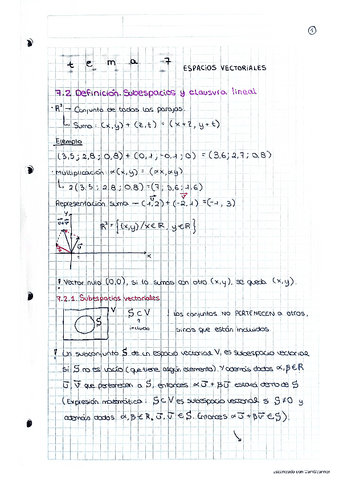 1
tema 7
ESPACIOS VECTORIALES
7.2 Definición. Subespacios y clausura lineal
· R² - Conjunto de todas las parejas.
Suma: (x,y) + (z,t) = (x+z, y+t)
Ejemplo
(3,5; 2,8; 0,8) + (0,1; -0,1; 0) = (3,6; 2,7; 0,8)
· Multiplicación: α(x,y) = (αx, αy)
2(3,5; 2,8; 0,8) = (7; 3,6; 1,6)
Representación suma - (1,2) + (-2,1) = (-1,3)
R² = {(x,y)/x∈R, y∈R}
y
x
! Vector nulo (0,0), si lo sumas con otro (x,y), se queda (x,y).
7.2.1. Subespacios vectoriales
V
S
S ⊂ V : los conjuntos NO PERTENECEN a otros,
incluido
sinos que están incluidos
! Un subconjunto S de un espacio vectorial V, es subespacio vectorial
si S no es vacío (que tiene algún elemento). Y además dados α, β ∈ R
u, v que pertenecen a S, entonces αu + βv estará dentro de S
(Expresión matemática: S ⊂ V es subespacio vectorial si S ≠ ∅ y
además dados α, β ∈ R, u, v ∈ S. Entonces αu + βv ∈ S).
Escaneado con CamScanner